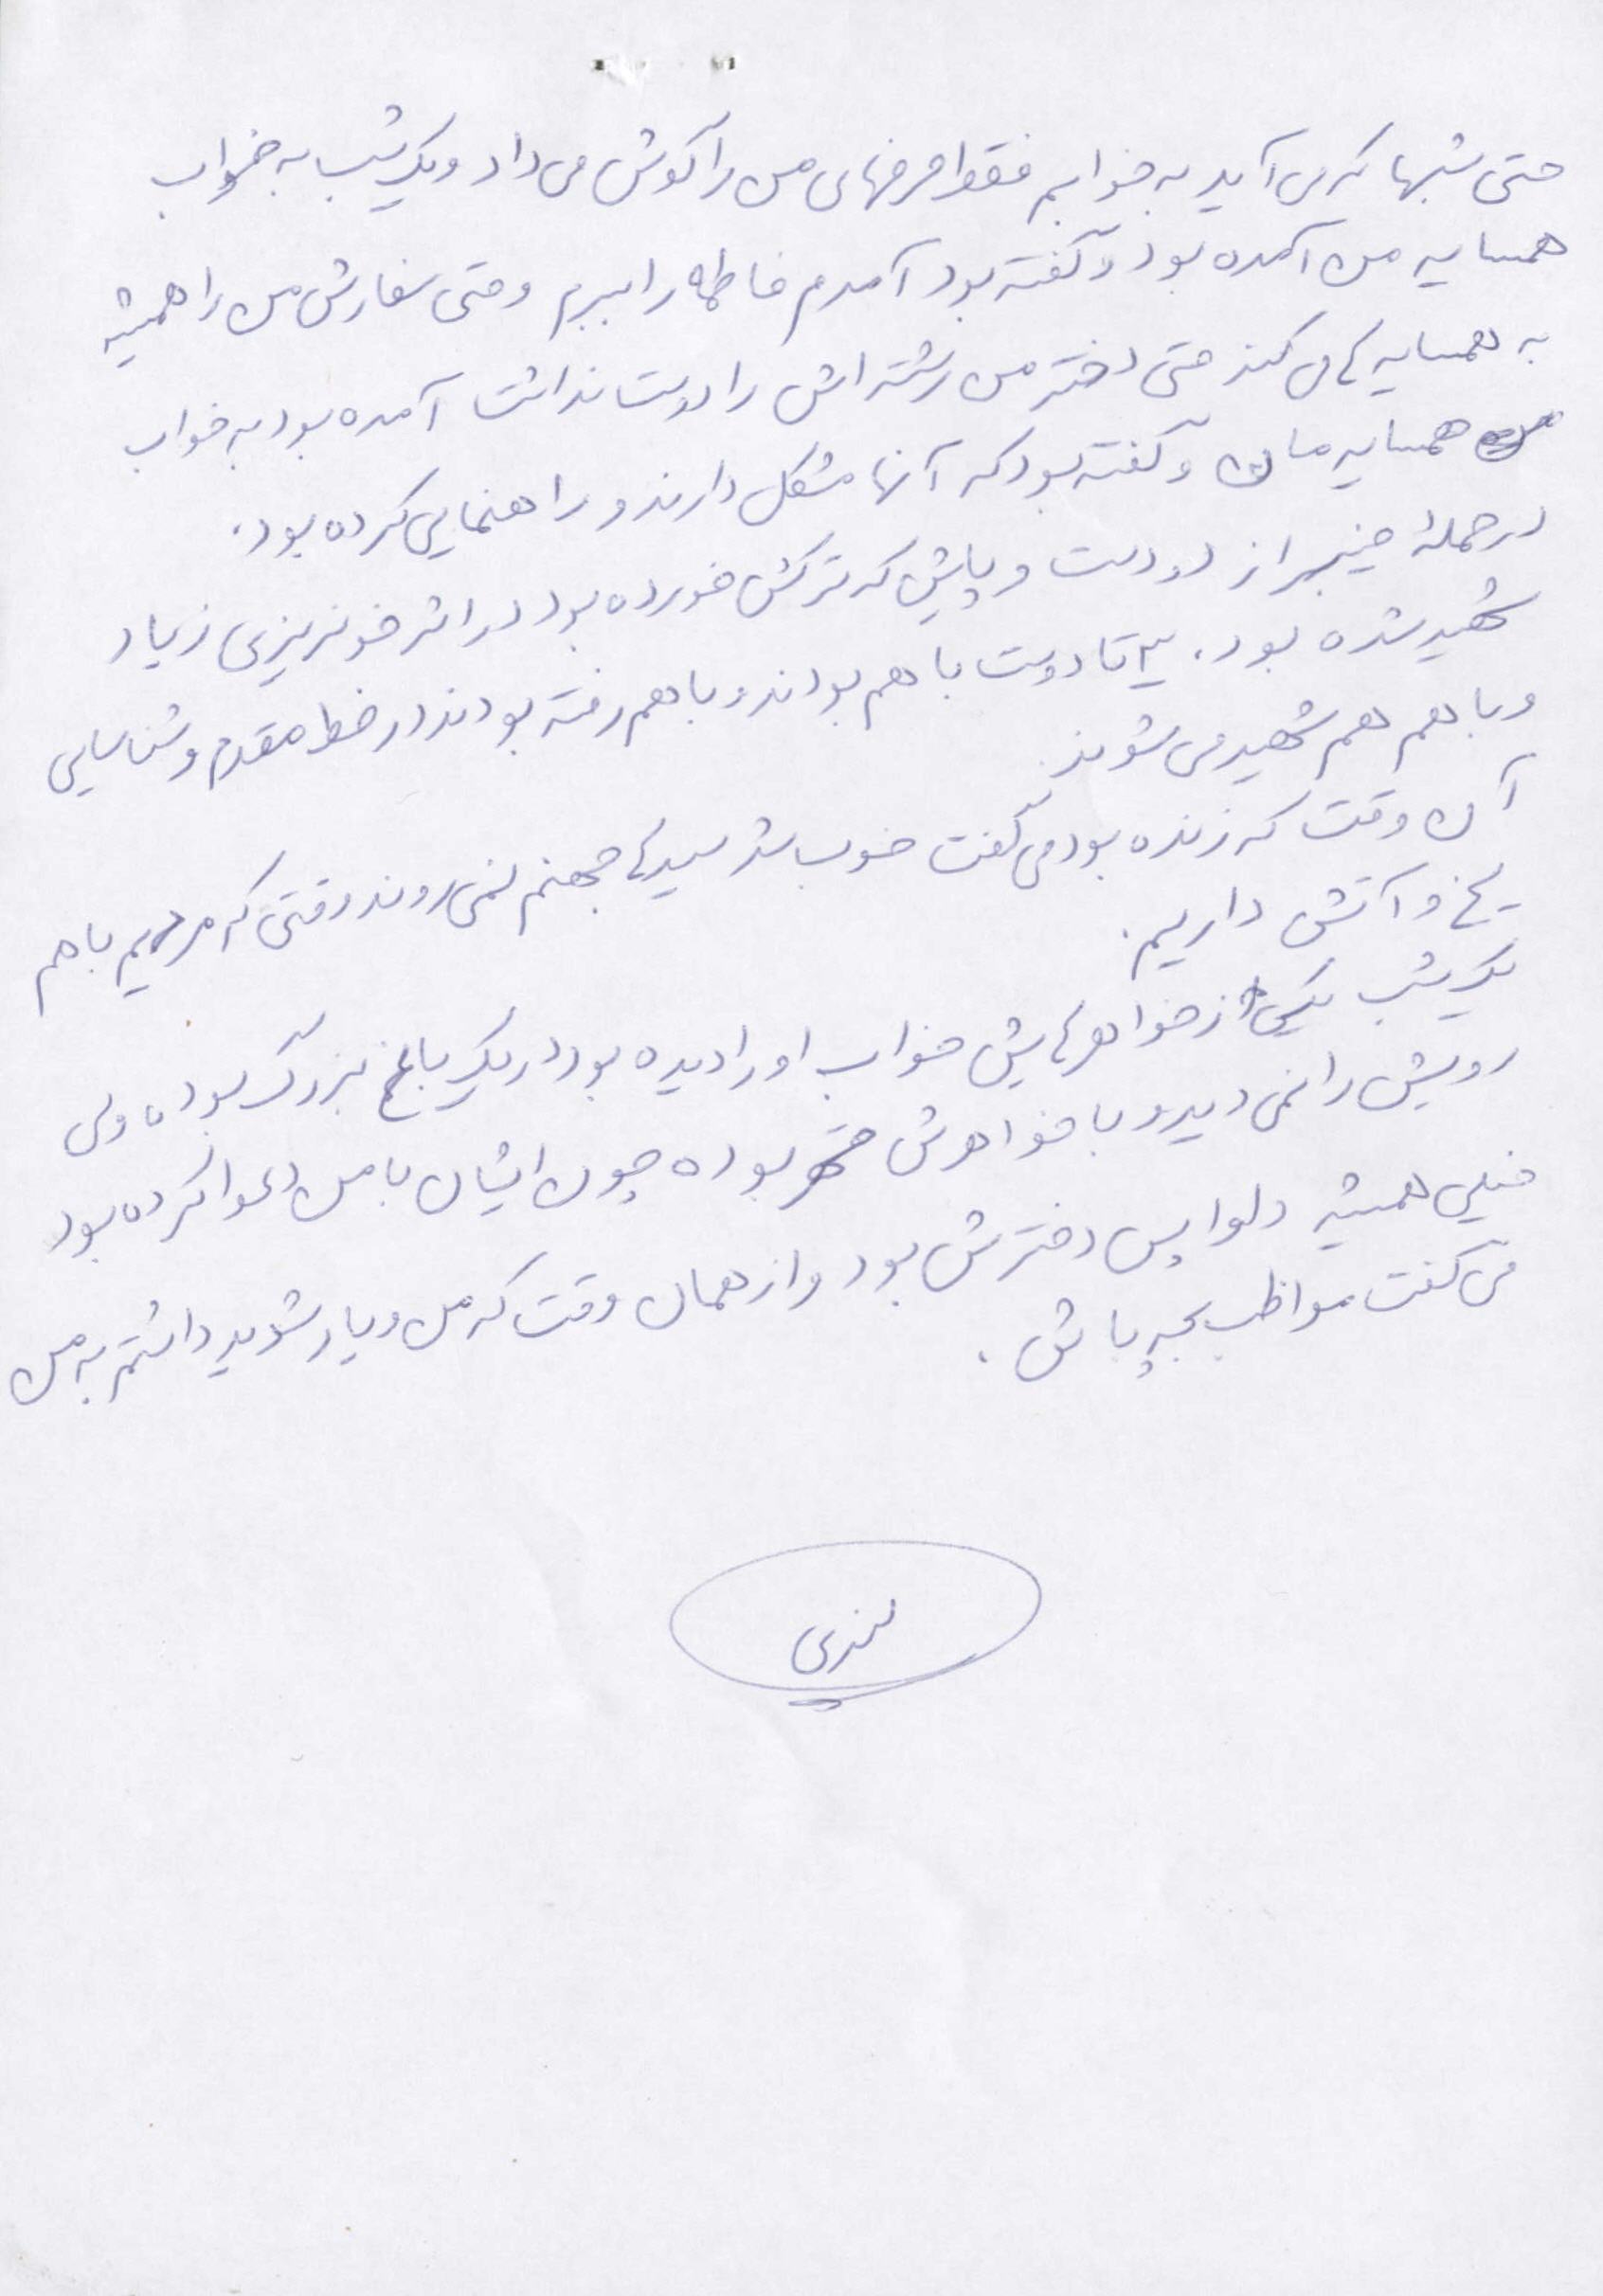 حتی شبها که می آید به خوابم فقط حرفهای من را گوش می داد و یک شب به خواب
همسایه من آمده بود و گفته بود آمدم فاطمه را ببرم و حتی سفارش من را همیشه
به همسایه ها می کند حتی دختر من رشته اش را دوست نداشت آمده بود به خواب
همسایه مان و گفته بود که آنها مشکل دارند و راهنمایی کرده بود.
در حمله خیبر از دو دست و پایش که ترکش خورده بود در اثر خونریزی زیاد
شهید شده بود. ۳ تا دوست با هم بودند و با هم رفته بودند در خط مقدم و شناسایی
و با هم هم شهید می شوند.
آن وقت که زنده بود می گفت خوب شد سیدها جهنم نمی روند وقتی که مردیم با هم
یخ و آتش داریم.
یک شب یکی از خواهرهایش خواب او را دیده بود در یک باغ بزرگ بوده ولی
رویش را نمی دید و با خواهرش قهر بوده چون ایشان با من دعوا کرده بود
خیلی همیشه دلواپس دخترش بود و از همان وقت که من ویار شدید داشتم به من
می گفت مواظب بچه باش.